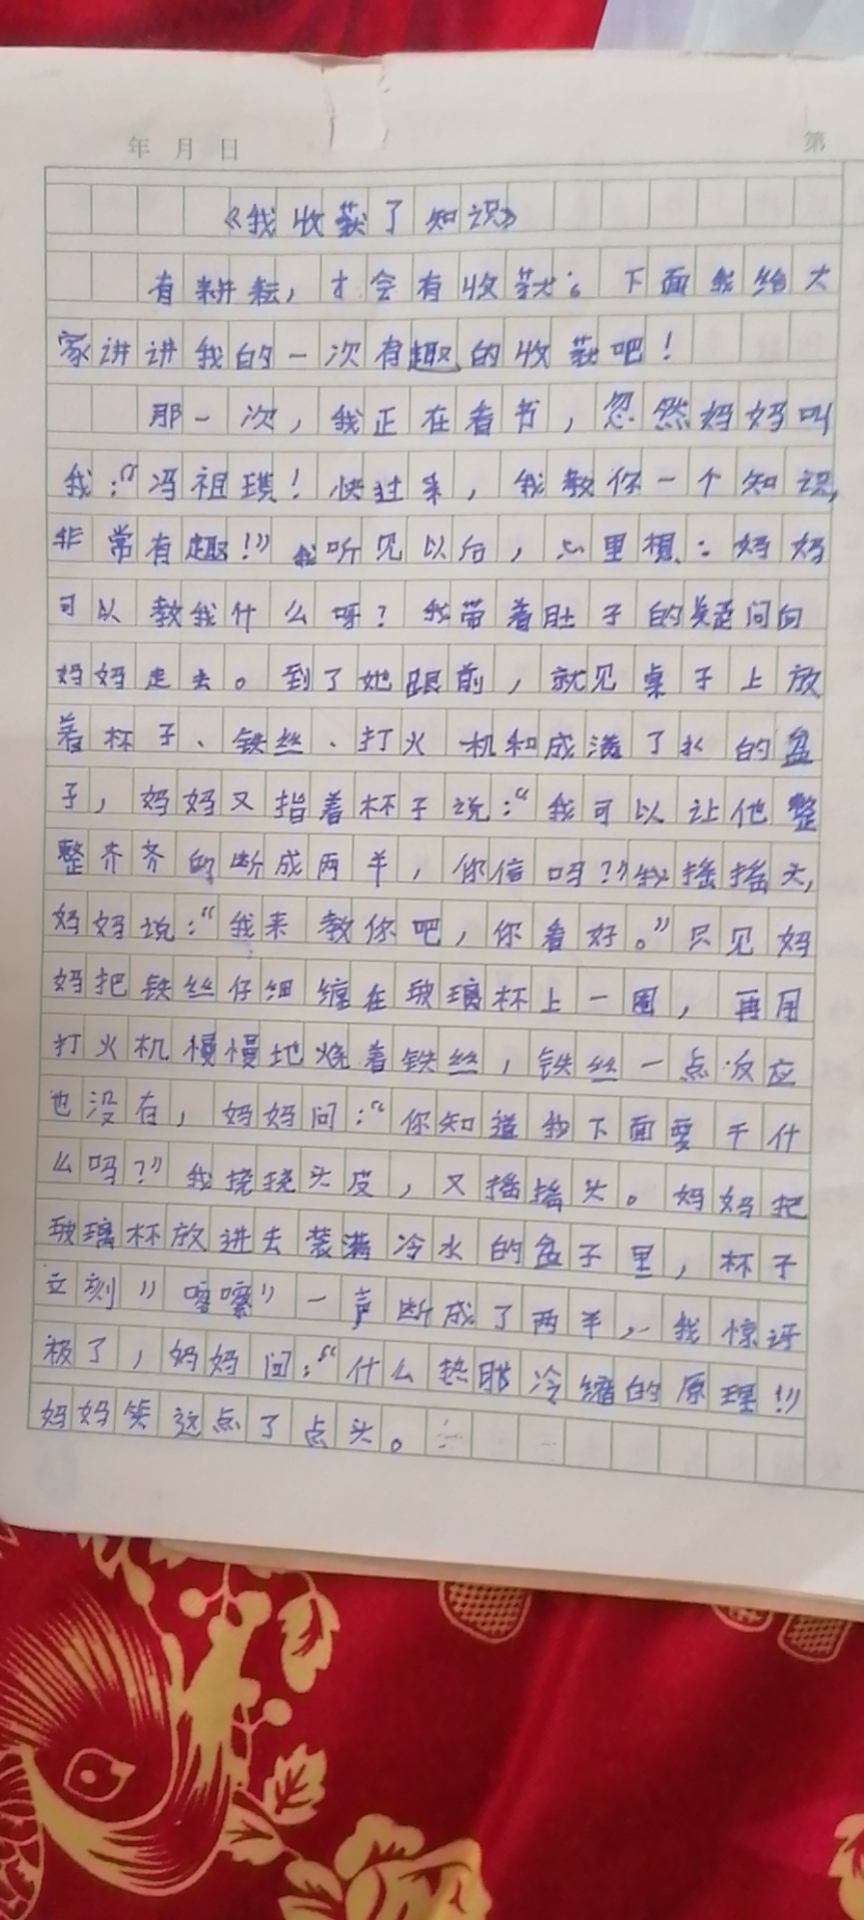 年 月 日
第
《我收获了知识》
有耕耘，才会有收获。下面我给大
家讲讲我的一次有趣的收获吧！
那一次，我正在看书，忽然妈妈叫
我：“冯祖琪！快过来，我教你一个知识，
非常有趣！”我听见以后，心里想：妈妈
可以教我什么呀？我带着肚子的疑问向
妈妈走去。到了她跟前，就见桌子上放
着杯子、铁丝、打火机和成满了水的盆
子，妈妈又指着杯子说：“我可以让他整
整齐齐的断成两半，你信吗？”我摇摇头，
妈妈说：“我来教你吧，你看好。”只见妈
妈把铁丝仔细缠在玻璃杯上一圈，再用
打火机慢慢地烧着铁丝，铁丝一点反应
也没有，妈妈问：“你知道我下面要干什
么吗？”我挠挠头皮，又摇摇头。妈妈把
玻璃杯放进去装满冷水的盆子里，杯子
立刻”嚓嚓”一声断成了两半，我惊讶
极了，妈妈问：“什么热胀冷缩的原理！”
妈妈笑这点了点头。